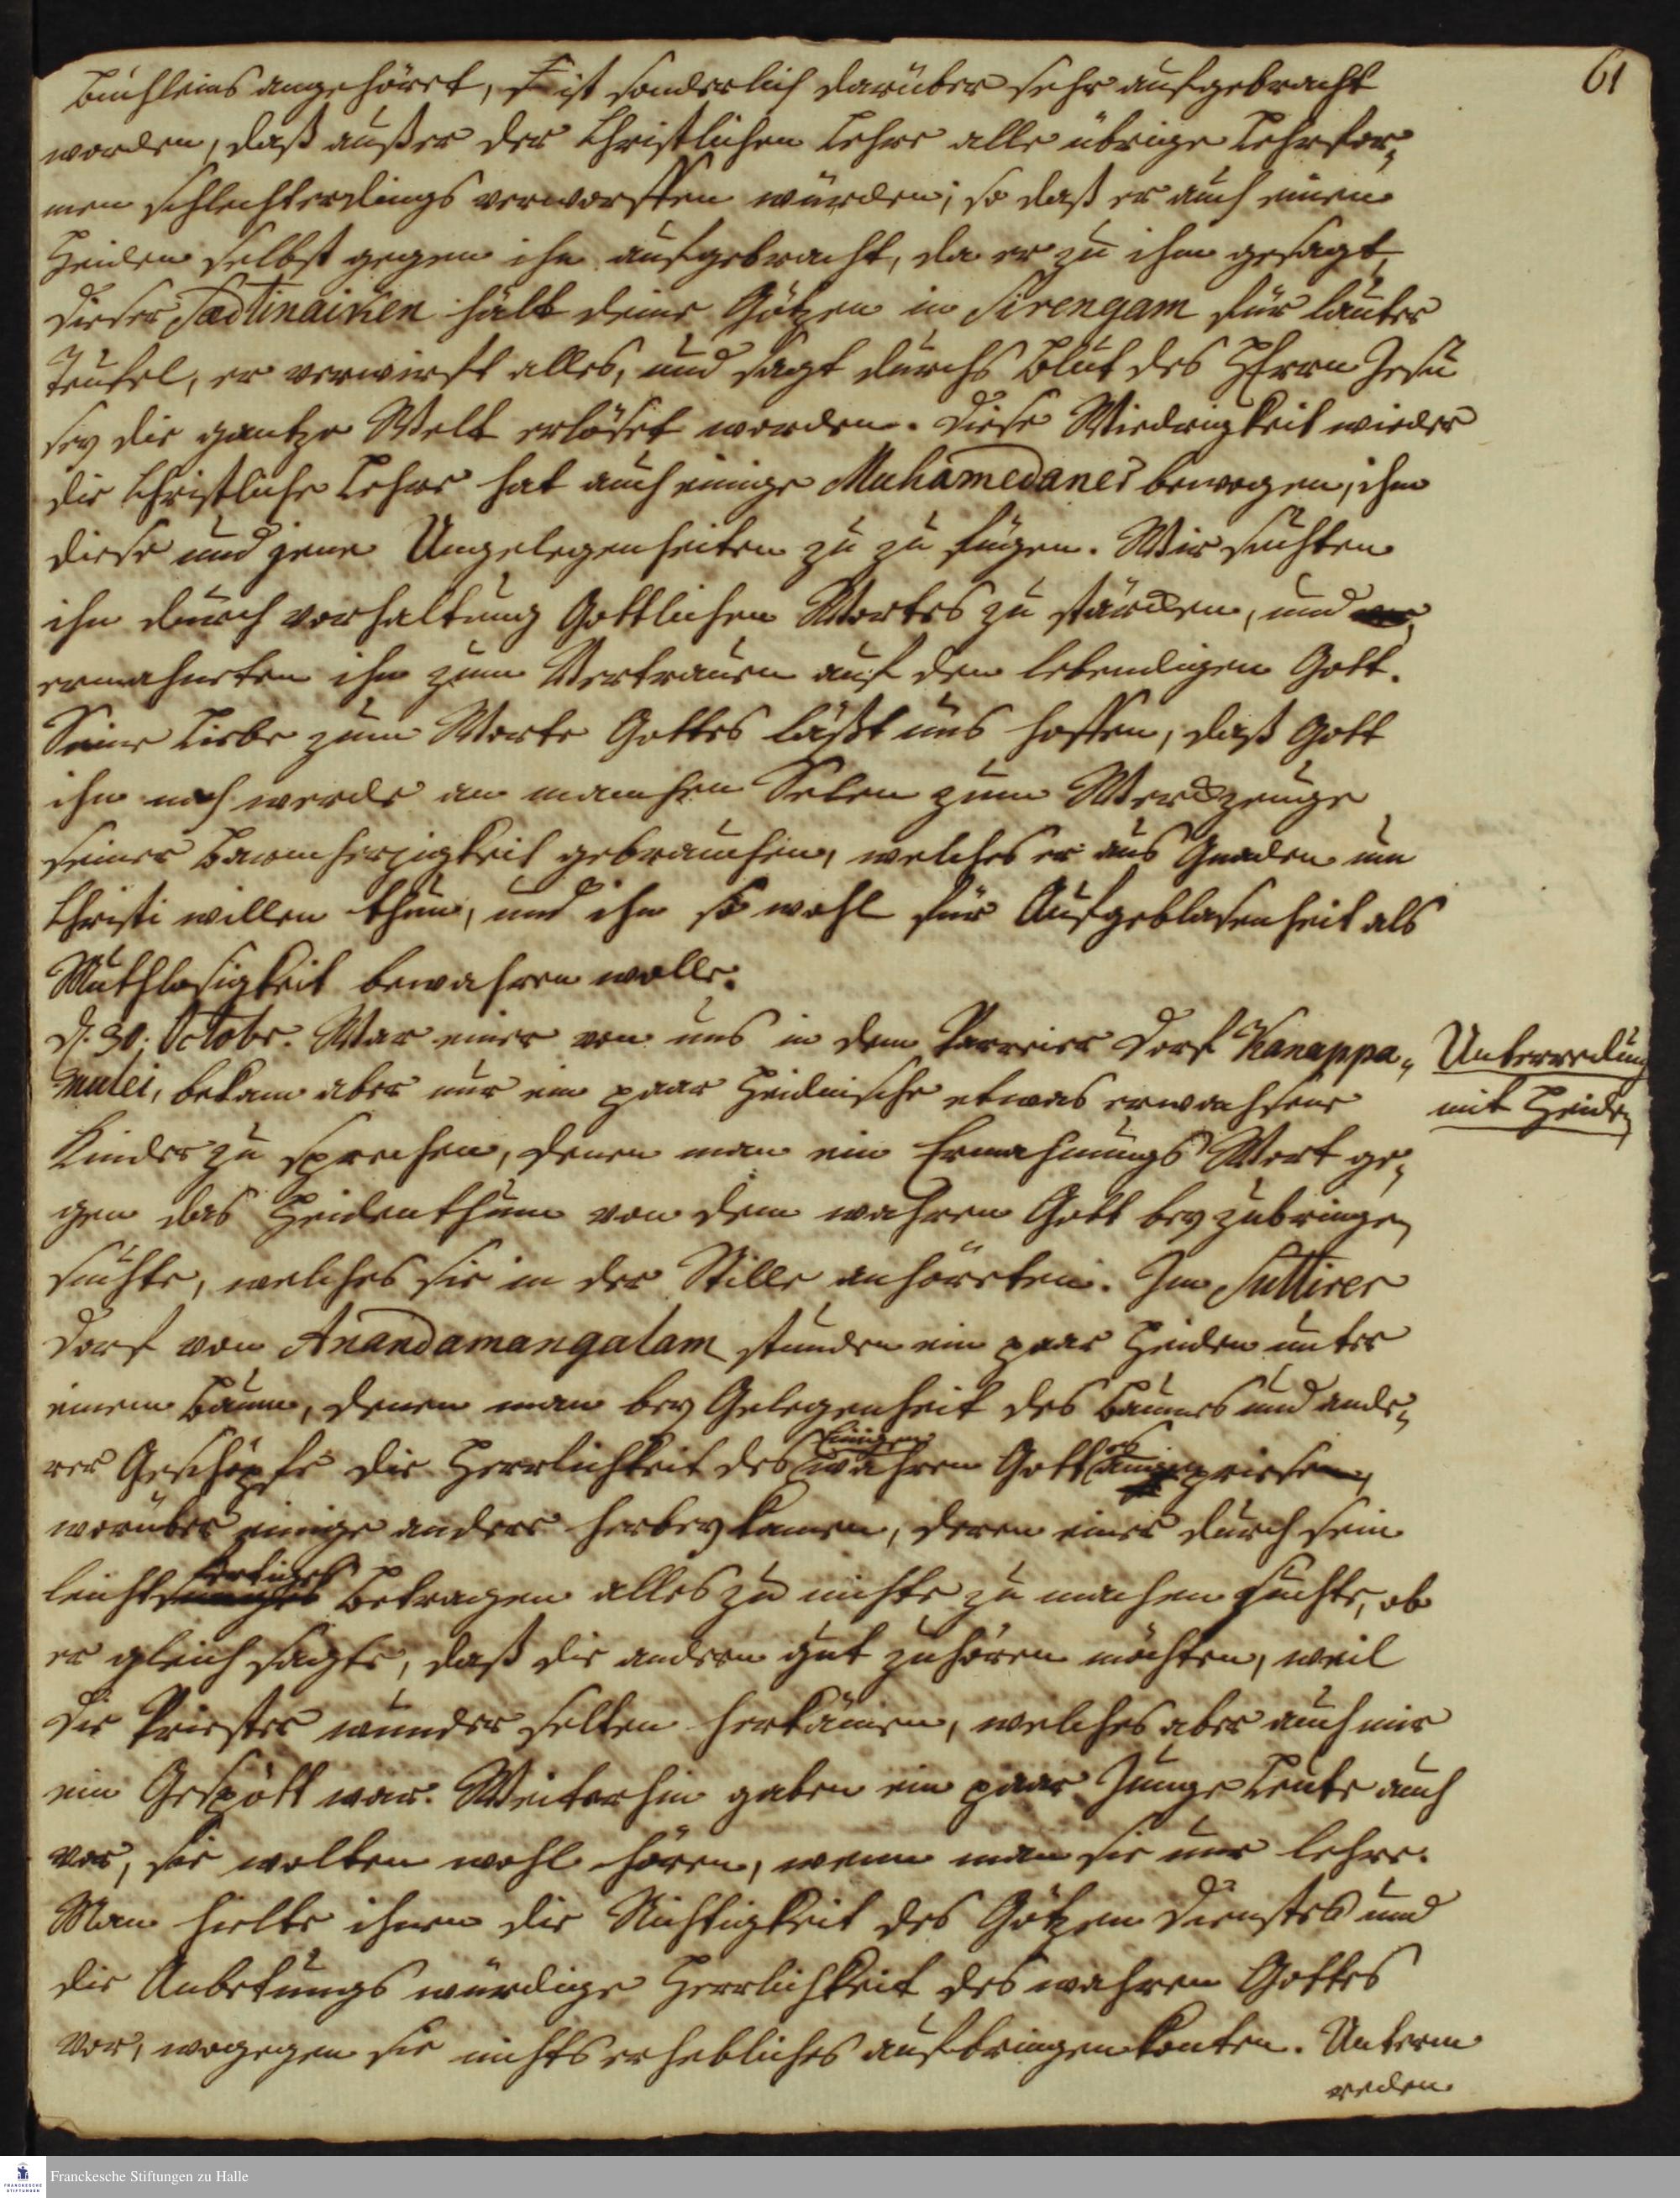 61
Büchleins angehöret, ist sonderlich darüber sehr aufgebracht
worden, daß außer der Christlichen Lehre alle übrige Lehrfor„
men schlechterdings verworffen würden; so daß er auch einen
Heiden selbst gegen ihn aufgebracht, da er zu ihm gesagt,
dieser Sadtinaiken hält deine Götzen in Sirengam für lauter
Teufel, er verwirft alles, und sagt durchs Blut des HErrn Jesu
sey die gantze Welt erlöset worden. Diese Wiedrigkeit wieder
die Christliche Lehre hat auch einige Muhamedaner bewogen, ihm
diese und jene Ungelegenheiten zu zu fügen. Wir suchten
ihn durch vorhaltung Göttlichen Wortes zu stärcken, und
ermahneten ihn zum Vertrauen auf den lebendigen Gott.
Seine Liebe zum Worte Gottes läßt uns hoffen, daß Gott
ihn noch werde an manchen Selen zum Werckzeuge
seiner Barmherzigkeit gebrauchen, welches er aus Gnaden um
Christi willen thun, und ihn so wohl für Aufgeblasenheit als
Muthlosigkeit bewahren wolle.
d. 30. Octobr. War einer von uns in dem Parreier Dorf Kanappa„
mulei, bekam aber nur ein paar Heidnische etwas erwachsene
Kinder zu sprechen, denen man ein Ermahnungs Wort ge„
gen das Heidenthum von dem wahren Gott beyzubringen
suchte, welches sie in der Stille anhöreten. Im Suttirer
Dorf von Anandamangalam stunden ein paar Heiden unter
einem Baum, denen man bey Gelegenheit des Baumes und ande„
rer Geschöpfe die Herrlichkeit des Einigen wahren Gottes anpriesen,
worüber einige andere herbey kamen, deren einer durch sein
leichtfertiges Betragen alles zu nichte zu machen suchte, ob
er gleich sagte, daß die andern gut zuhören möchten, weil
die Priester wunder selten herkämen, welches aber auch nur
ein Gespött war. Weiterhin gaben ein paar Junge Leute auch
vor, sie wolten wohl hören, wenn man sie nur lehre.
Man hielte ihnen die Nichtigkeit des Götzen Dienstes und
die Anbetungs würdige Herrlichkeit des wahren Gottes
vor, wogegen sie nichts erhebliches aufbringen konten. Unterm
reden
Unterredung
mit Heiden
Franckesche Stiftungen zu Halle